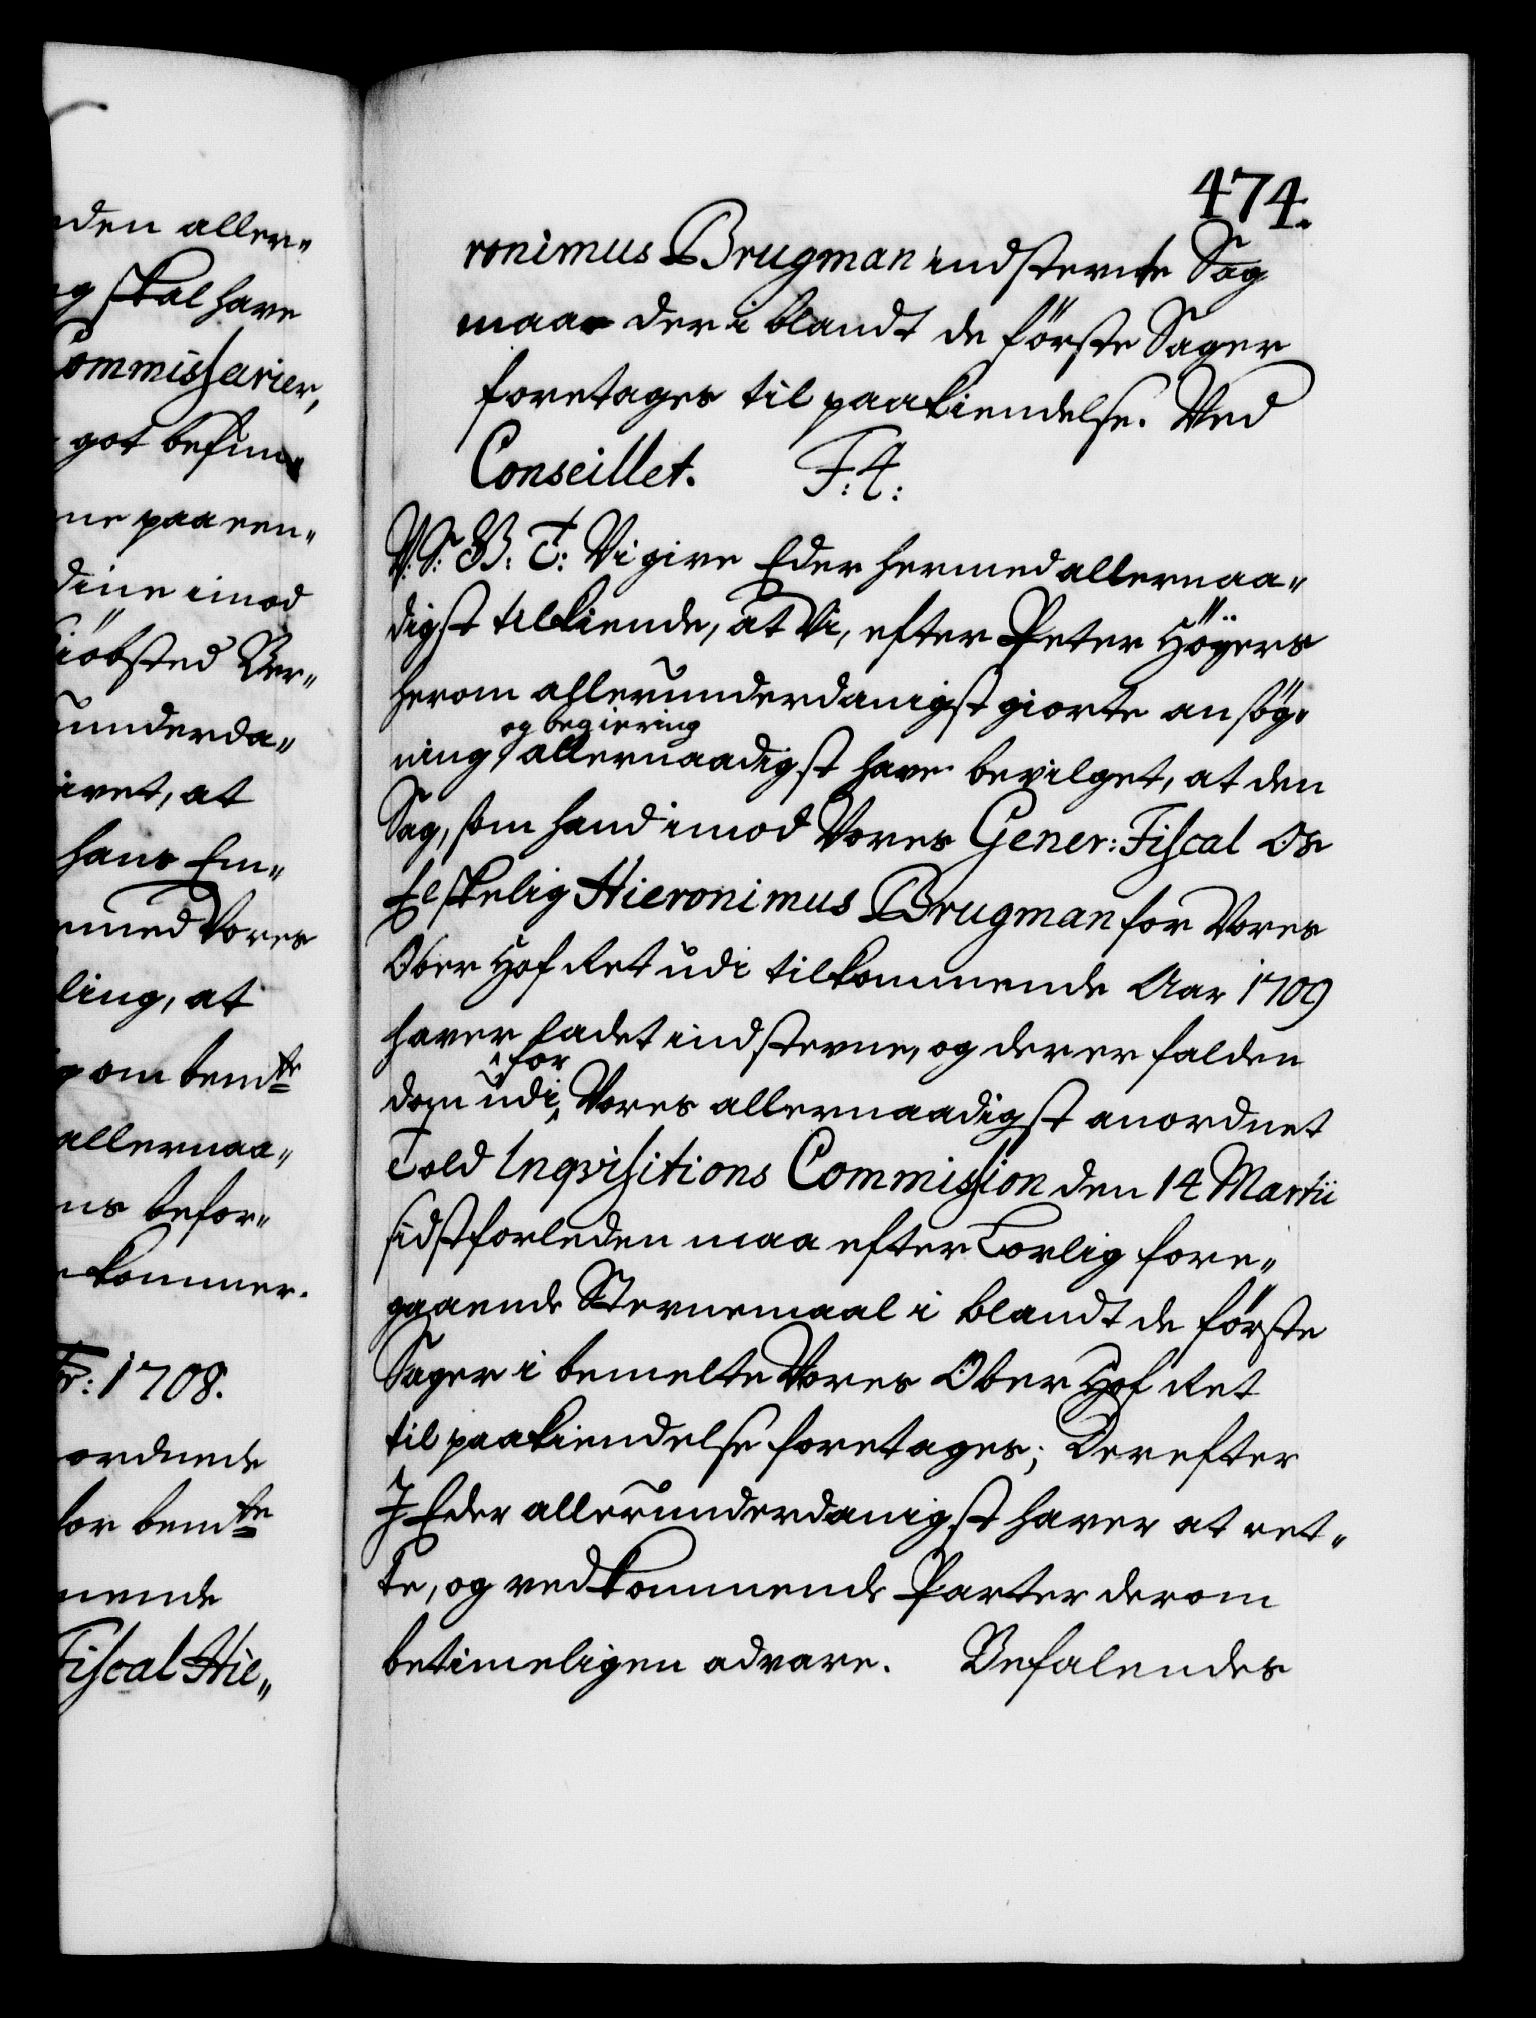 nden aller„
g skal have
Commissarier,
got befin„
ne paa en„
dine imod
Kiöbsted Ver„
underda„
ivet, at
hans Em„
med Vores
ling, at
om bemte
allernaa„
ns befor„
kommer.
Fr: 1708.
ordnede
for bemte
mende
Fiscal Hie„
474.
ronimus Brugman indstevnte Sag
maae der i blandt de förste Sager
foretages til paakiendelse. Ved
Conseillet. F: 4:
V. S: G. B: T: Vi give Eder hermed allernaa„
digst tilkiende, at Vi, efter Peter Höyers
herom allerunderdanigst giorte ansög„
og begiering
ning, allernaadigst have bevilget, at den
Sag, som hand imod Vores Gener: Fiscal Os
Elskelig Hieronimus Brugman for Vores
Ober Hof Ret udi tilkommende Aar 1709
haver ladet indstevne, og der er falden
for
dom udi Vores allernaadigst anordnet
Told Inqvisitions Commission den 14 Martii
sidstforleden maa efter Lovlig fore„
gaaende Stevnemaal i blandt de förste
Sager i bemelte Vores Ober Hof Ret
til paakiendelse foretages; Derefter
I Eder allerunderdanigst haver at ret„
te, og vedkommende Parter derom
betimeligen advare. Befalendes